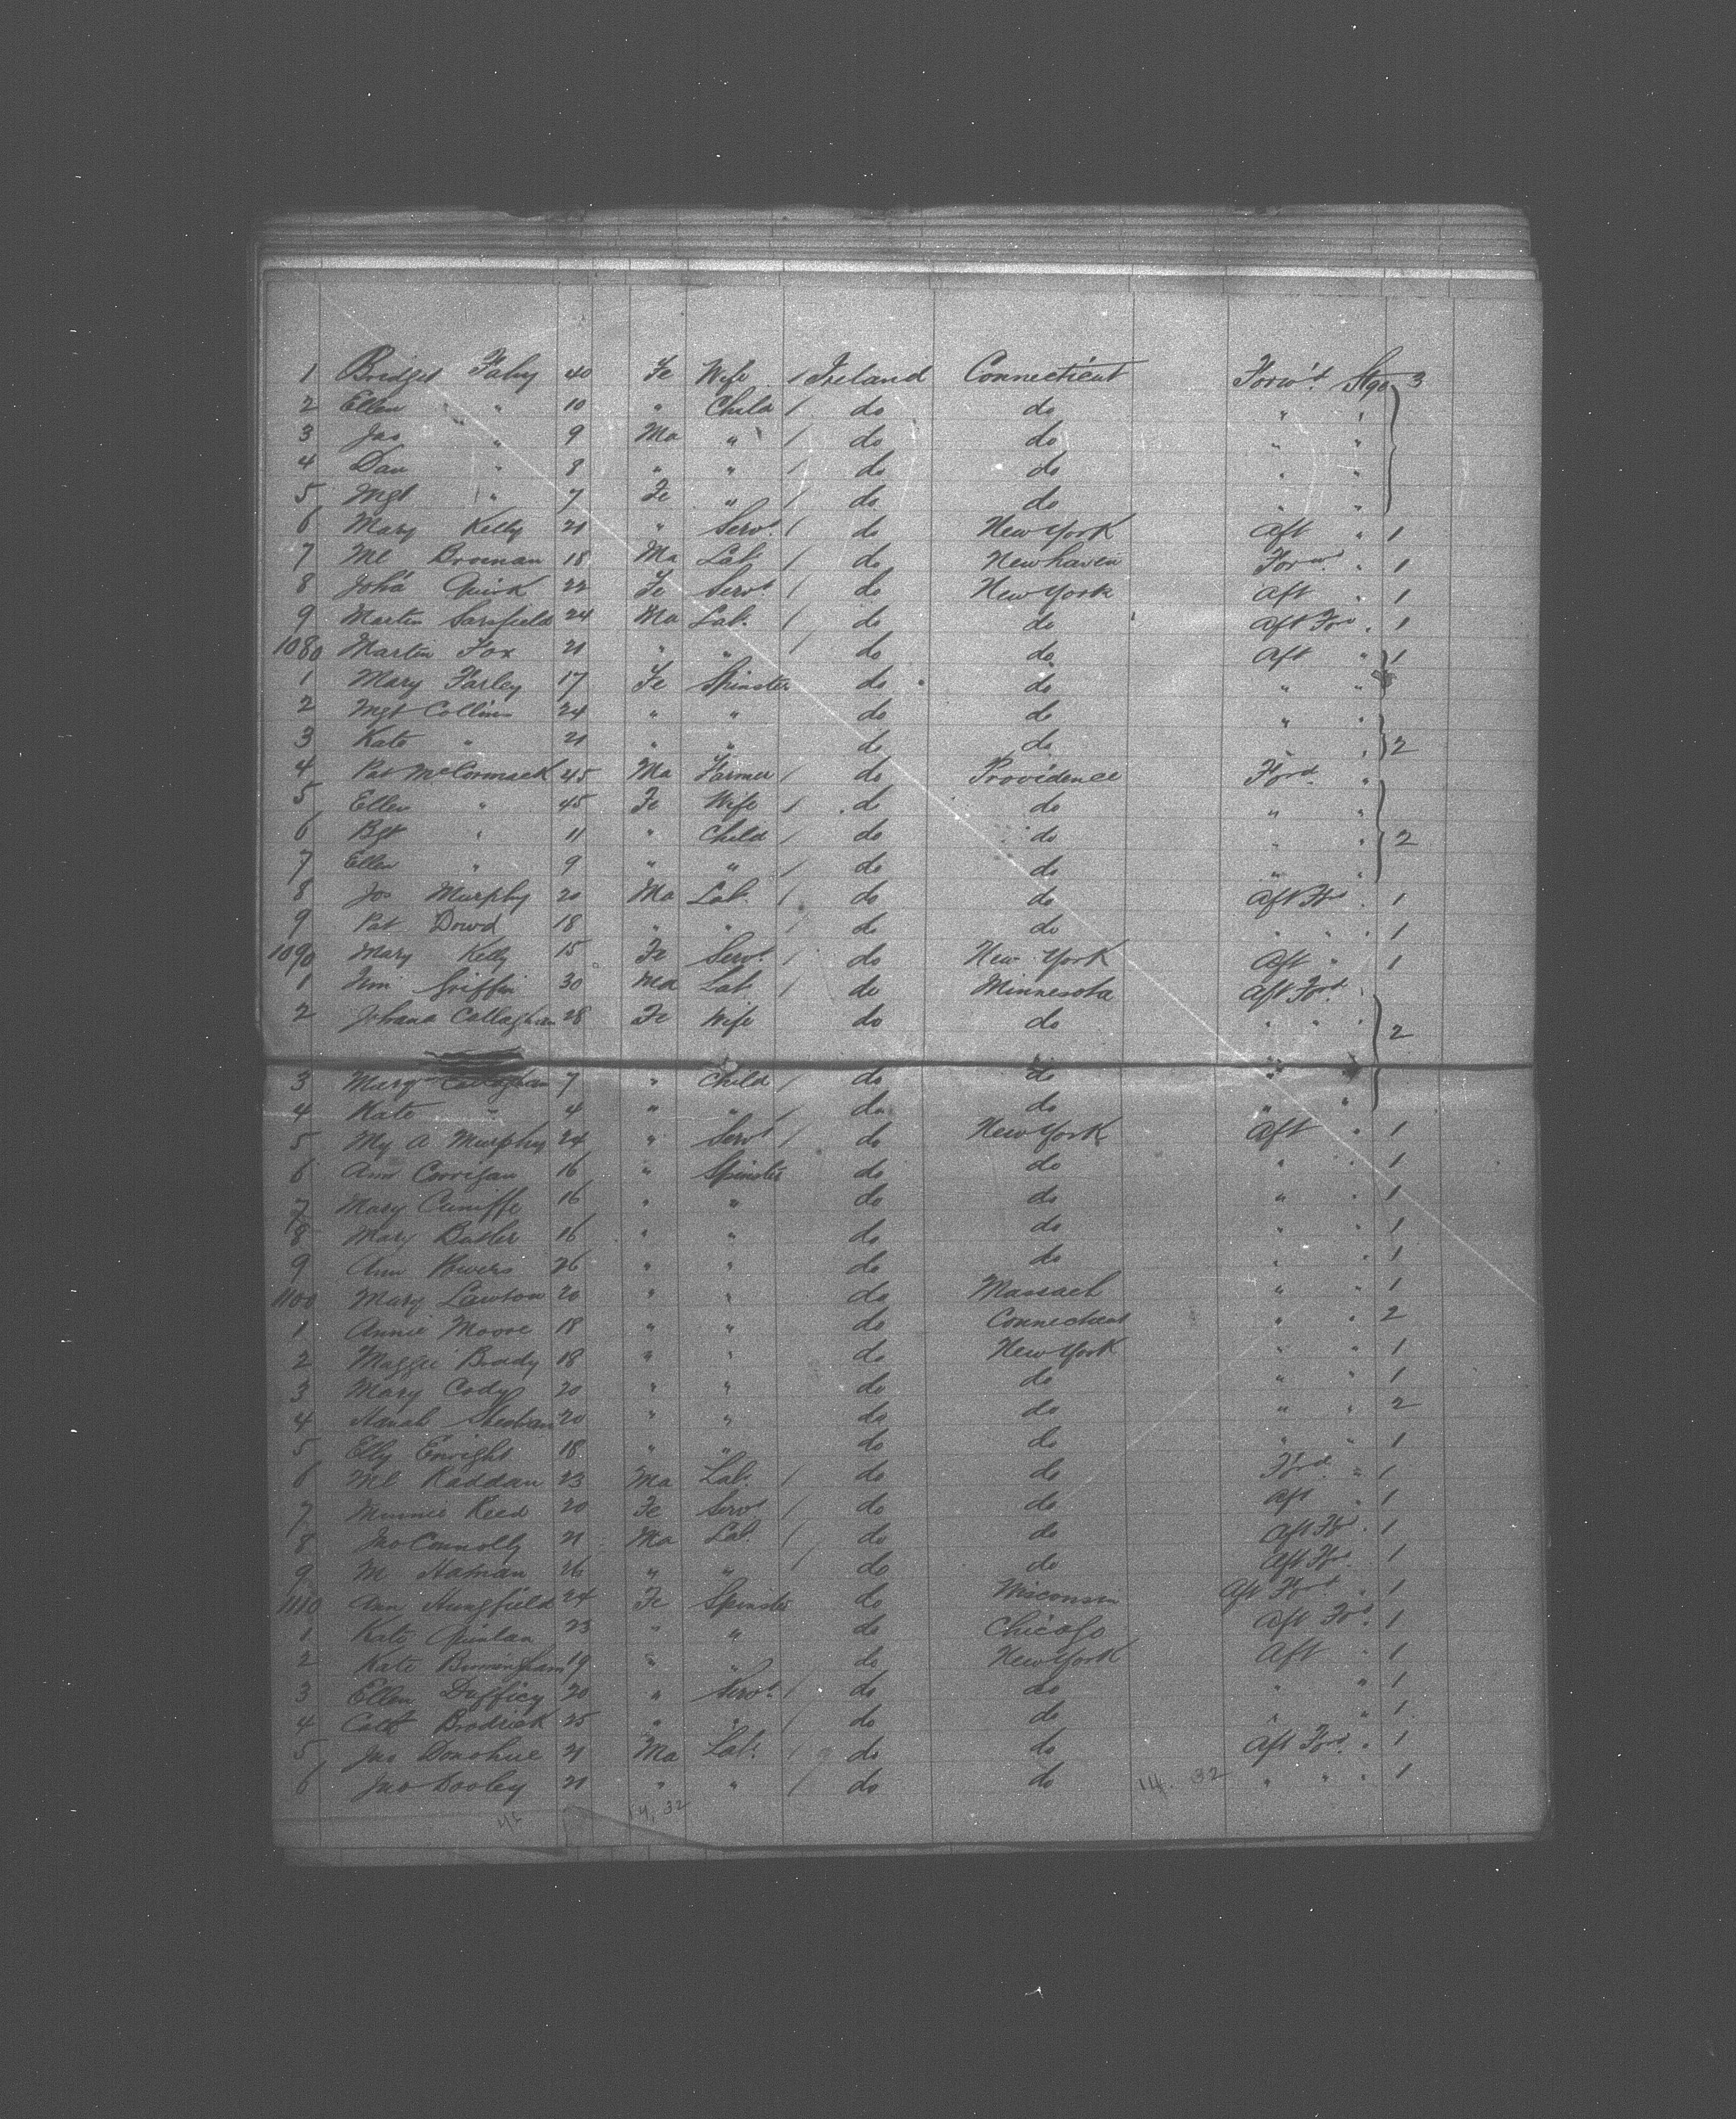 1 Bridget Fahy 40 Fe Wife / Ireland Connecticut Forw't Stge 3
2 Ellen " 10 " Child / do do " "
3 Jas " 9 Ma " / do do " "
4 Dan " 8 " " / do do " "
5 Mgt " 7 Fe " / do do " "
6 Mary Kelly 21 " Servt / do New York Aft " 1
7 Ml Bronan 18 Ma Lab / do Newhaven Forw " 1
8 Joha Quirk 22 Fe Servt / do New York Aft " 1
9 Martin Sarsfield 24 Ma Lab. / do do Aft For " 1
1080 Martin Fox 21 " " / do do Aft " 1
1 Mary Farley 17 Fe Spinster do do " "
2 Mgt Collins 24 " " do do " "
3 Kate " 21 " " do do " " 2
4 Pat McCormack 45 Ma Farmer / do Providence Ford "
5 Ellen " 45 Fe Wife / do do " "
6 Bgt " 11 " Child / do do " " 2
7 Ellen " 9 " " / do do " "
8 Jos Murphy 20 Ma Lab. / do do Aft For " 1
9 Pat Dowd 18 " " / do do " " " 1
1090 Mary Kelly 15 Fe Servt / do New York Aft " 1
1 Griffin 30 Ma Lab / do Minnesota Aft Ford "
2 Johana Callaghan 28 Fe Wife do do " " " 2
3 Mary Callaghan 7 " Child / do do " "
4 Kate " 4 " " / do do " "
5 My A Murphy 24 " Servt / do New York Aft " 1
6 Ann Corrigan 16 " Spinster do do " " 1
7 Mary Cuniffe 16 " " do do " " 1
8 Mary Butler 16 " " do do " " 1
9 Ann Powers 26 " " do do " " 1
1100 Mary Lawton 20 " " do Massach " " 1
1 Annie Moore 18 " " do Connecticut " " 2
2 Maggie Brady 18 " " do New York " " 1
3 Mary Cody 20 " " do do " " 1
4 Hanah Sheehan 20 " " do do " " 2
5 Elly Enright 18 " " do do " " 1
6 Ml Raddan 23 Ma Lab. / do do Ford " 1
7 Minnie Reed 20 Fe Servt / do do Aft " 1
8 Jno Connolly 21 Ma Lab. / do do Aft For " 1
9 M 26 " " / do do Aft For " 1
1110 Ann Hungfield 24 Fe Spinster do Wisconsin Aft Ford " 1
1 Kate Quinlan 23 " " do Chicago Aft For " 1
2 Kate Birmingham 19 " " do New York Aft " 1
3 Ellen Dufficy 20 " Servt / do do " " 1
4 Cath Brodrick 25 " " / do do " " 1
5 Jno Donohue 21 Ma Lab. / do do Aft Ford " 1
6 Jno Dooley 21 " " / do do 14. 32 " " " 1
14. 32